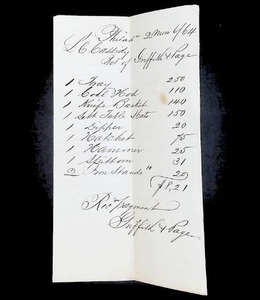 Philad 2 Mon 6/64
L C Cassidy
Bot of Griffith & Page
1 Tray 250
1 Coal Hod 110
1 Knife Basket 140
1 Sett Table Mats 150
1 Dipper 20
1 Hatchet 75
1 Hammer 25
1 Spittoon 31
2 Iron Stands " 20
$8.21
Rec payment
Griffith & Page